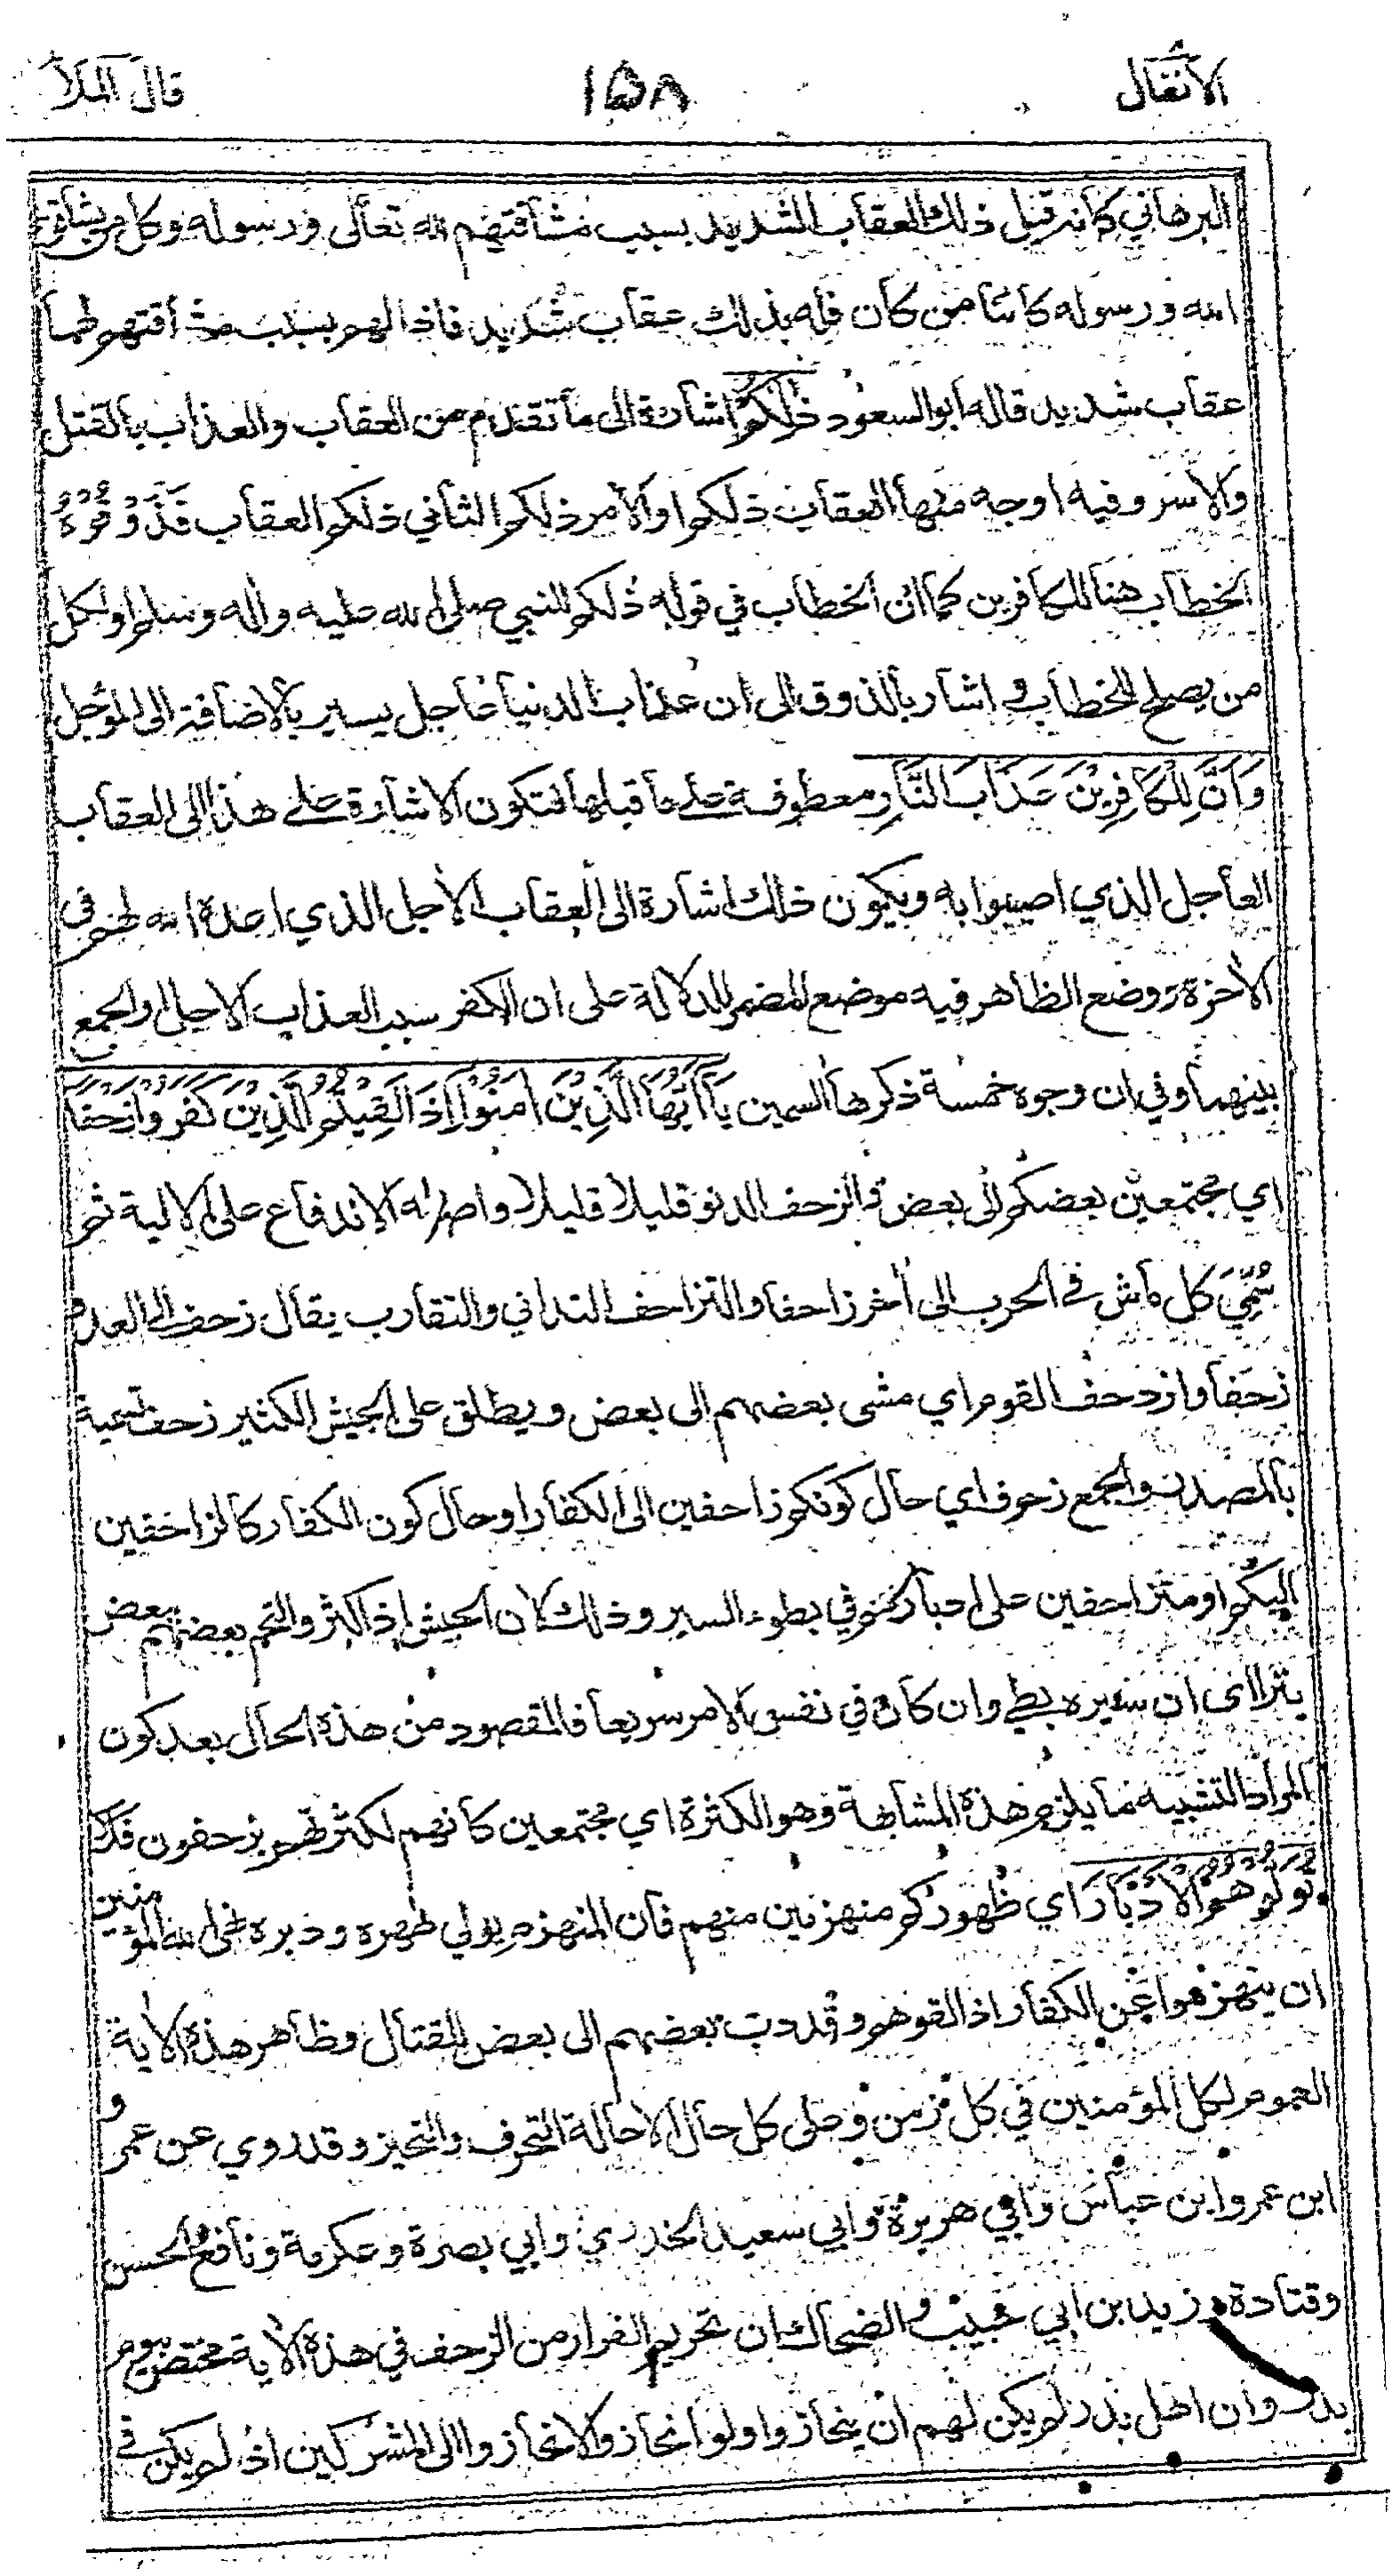 الأنفال ١٥٨ قال الملأ
البرهاني كأنه قيل ذلك العقاب الشديد بسبب مشاقتهم لله تعالى ورسوله وكل من يشاقق
الله ورسوله كائنا من كان فله بذلك عقاب شديد فاذا لهم بسبب مشاقتهم لهما
عقاب شديد قاله ابو السعود ذٰلِكُمْ اشارة الى ما تقدم من العقاب والعذاب بالقتل
والأسر وفيه اوجه منها العقاب ذلكم او الأمر ذلكم الثاني ذلكم العقاب فَذُوْقُوْهُ
الخطاب هنا للكافرين كما ان الخطاب في قوله ذلكم للنبي صلى الله عليه واله وسلم او لكل
من يصلح للخطاب واشار بالذوق الى ان عذاب الدنيا عاجل يسير بالاضافة الى المؤجل
وَاَنَّ لِلْكَافِرِيْنَ عَذَابَ النَّارِ معطوفة على ما قبلها فتكون الاشارة على هذا الى العقاب
العاجل الذي اصيبوا به ويكون ذلك اشارة الى العقاب الأجل الذي اعده الله لهم في
الأخرة ووضع الظاهر فيه موضع المضمر للدلالة على ان الكفر سبب العذاب الاجل او الجمع
بينهما وفي ان وجوه خمسة ذكرها السمين يَاأَيُّهَا الَّذِيْنَ اٰمَنُوْا اِذَا لَقِيْتُمُ الَّذِيْنَ كَفَرُوْا زَحْفًا
اي مجتمعين بعضكم الى بعض والزحف الدنو قليلا قليلا واصله الاندفاع على الالية ثم
سُمِّيَ كل ماش في الحرب الى أخر زاحفا والتزاحف التداني والتقارب يقال زحف الى العدو
زحفا وازدحف القوم اي مشى بعضهم الى بعض ويطلق على الجيش الكثير زحف تسمية
بالمصدر والجمع زحوف اي حال كونكم زاحفين الى الكفار او حال كون الكفار كالزاحفين
اليكم او متزاحفين على ادباركم في بطوء السير وذلك لان الجيش اذا كثر والتحم بعضهم ببعض
يترااى ان سيره بطي وان كان في نفس الامر سريعا فالمقصود من هذه الحال بعد كون
المراد التشبيه ما يلزم هذه المشابهة وهو الكثرة اي مجتمعين كانهم لكثرتهم يزحفون فَلَا
تُوَلُّوْهُمُ الْاَدْبَارَ اي ظهوركم منهزمين منهم فان المنهزم يولي ظهره ودبره نهى الله المؤمنين
ان ينهزموا عن الكفار اذا لقوهم وقد دب بعضهم الى بعض للقتال وظاهر هذه الأية
العموم لكل المؤمنين في كل زمن وعلى كل حال الا حالة التحرف والتحيز وقد روي عن عمر و
ابن عمر وابن عباس وابي هريرة وابي سعيد الخدري وابي بصرة وعكرمة ونافع والحسن
وقتادة وزيد بن ابي حبيب والضحاك ان تحريم الفرار من الزحف في هذه الأية مختص بيوم
بدر وان اهل بدر لم يكن لهم ان ينحازوا ولو انحازوا لانحازوا الى المشركين اذ لم يكن في